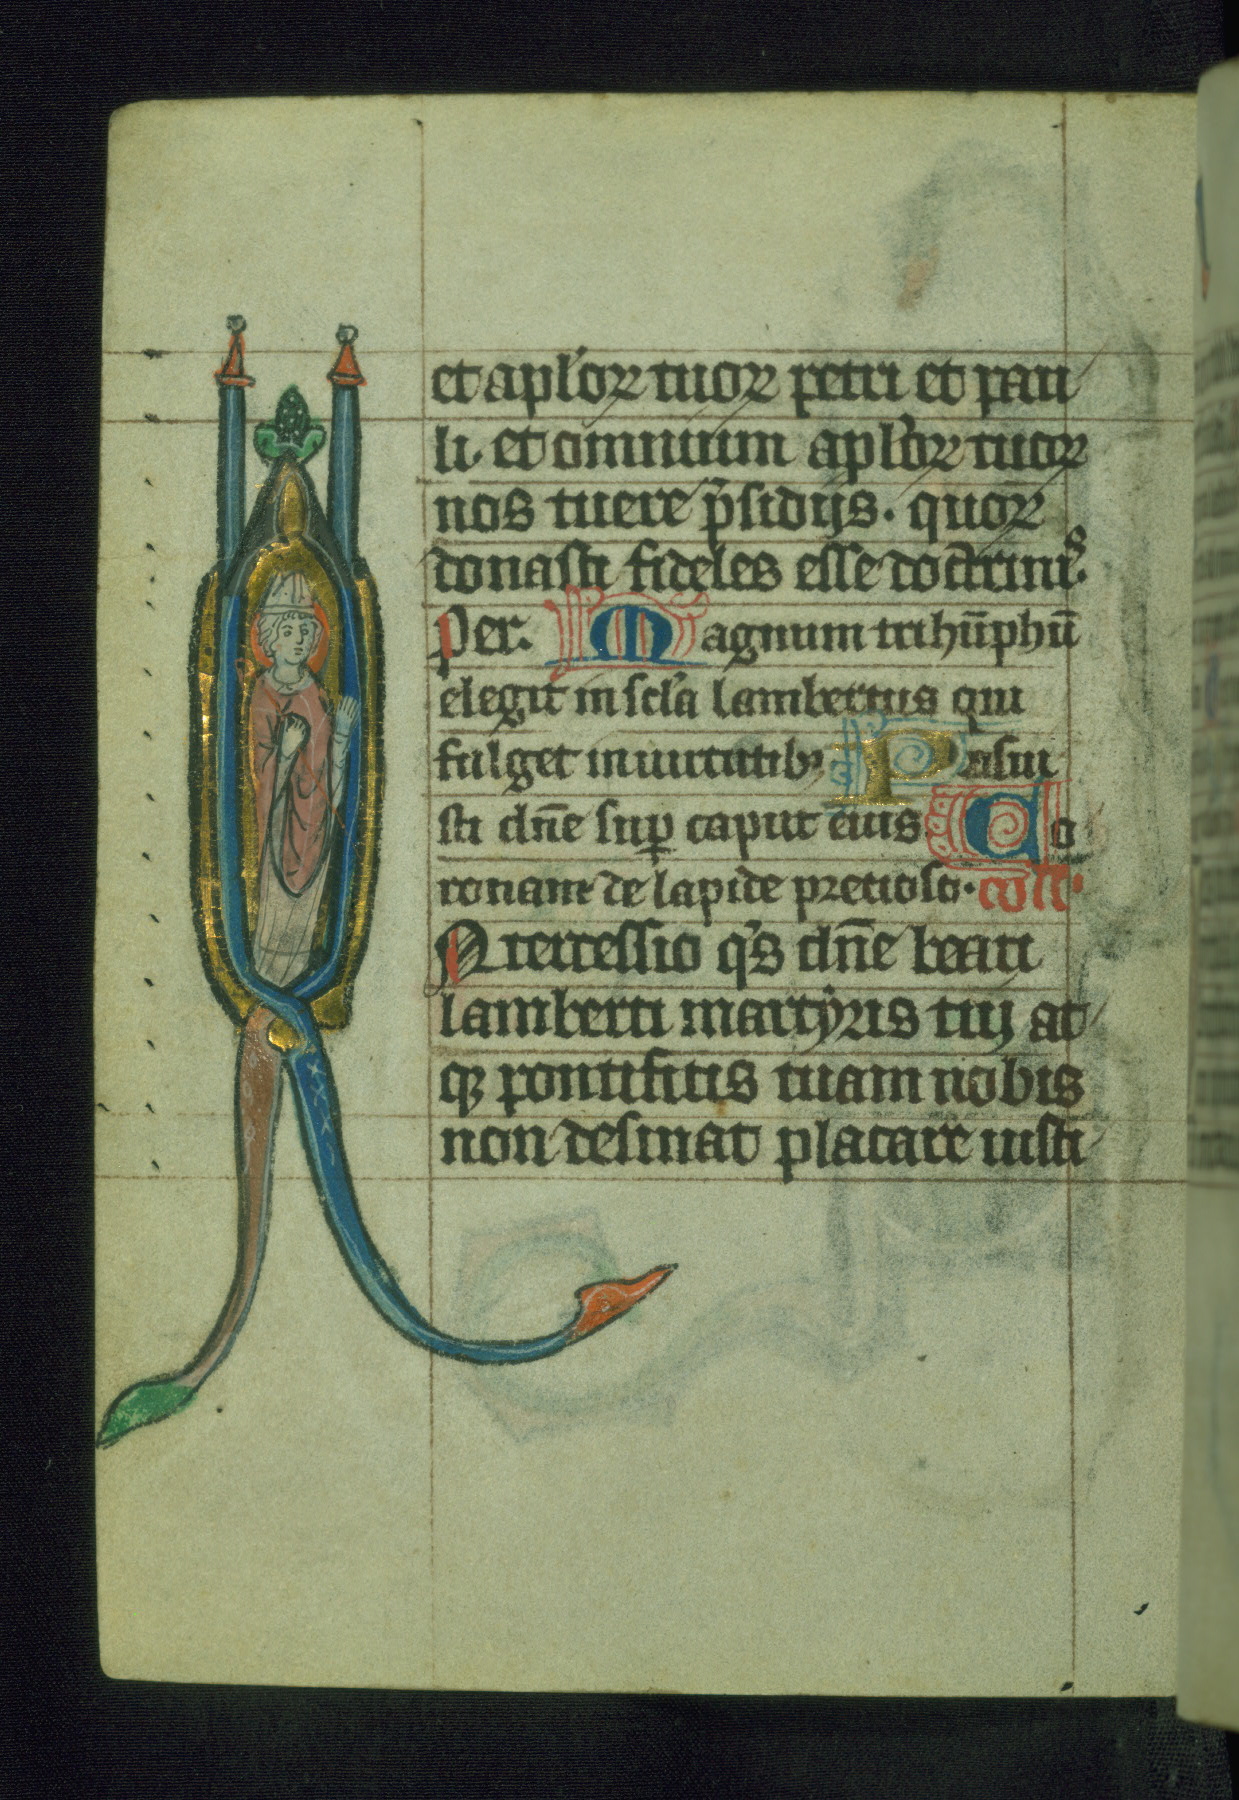 et apl'oꝝ tuoꝝ petri et pau
li. et omnium apl'oꝝ tuoꝝ
nos tuere p̄sidijs. quoꝝ
donasti fideles esse doctrinis.
Per. Magnum trihūphū
elegit in scl'a lambertus qui
fulget in uirtutibꝫ Posui
sti dn̄e suꝑ caput eius Co
ronam de lapide pretioso. coll'.
Ntercessio q's dn̄e beati
lamberti martyris tuj at
qꝫ pontificis tuam nobis
non desinat placare iusti